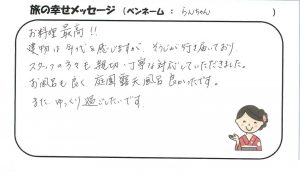 旅の幸せメッセージ (ペンネーム : らんちゃん )
お料理 最高!!
建物は古さを感じますが、そうじが行き届いており
スタッフの方々も 親切・丁寧な対応していただきました。
お風呂も良く 庭園露天風呂 良かったです。
また ゆっくり過ごしたいです。